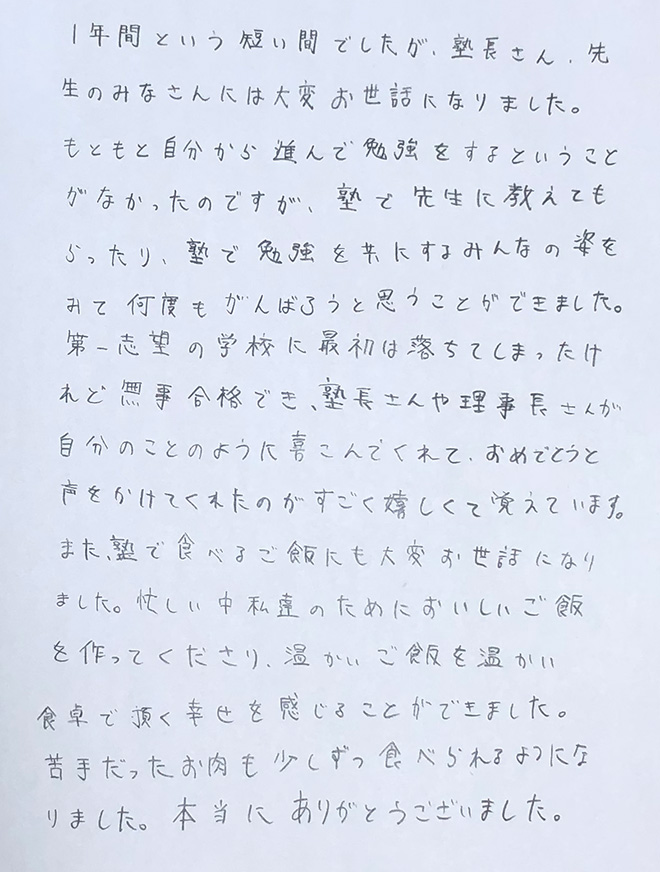 1年間という短い間でしたが、塾長さん、先
生のみなさんには大変お世話になりました。
もともと自分から進んで勉強をするということ
がなかったのですが、塾で先生に教えても
らったり、塾で勉強を共にするみんなの姿を
みて何度もがんばろうと思うことができました。
第一志望の学校に最初は落ちてしまったけ
れど無事合格でき、塾長さんや理事長さんが
自分のことのように喜こんでくれて、おめでとうと
声をかけてくれたのがすごく嬉しくて覚えています。
また、塾で食べるご飯にも大変お世話になり
ました。忙しい中私達のためにおいしいご飯
を作ってくださり、温かいご飯を温かい
食卓で頂く幸せを感じることができました。
苦手だったお肉も少しずつ食べられるようにな
りました。本当にありがとうございました。